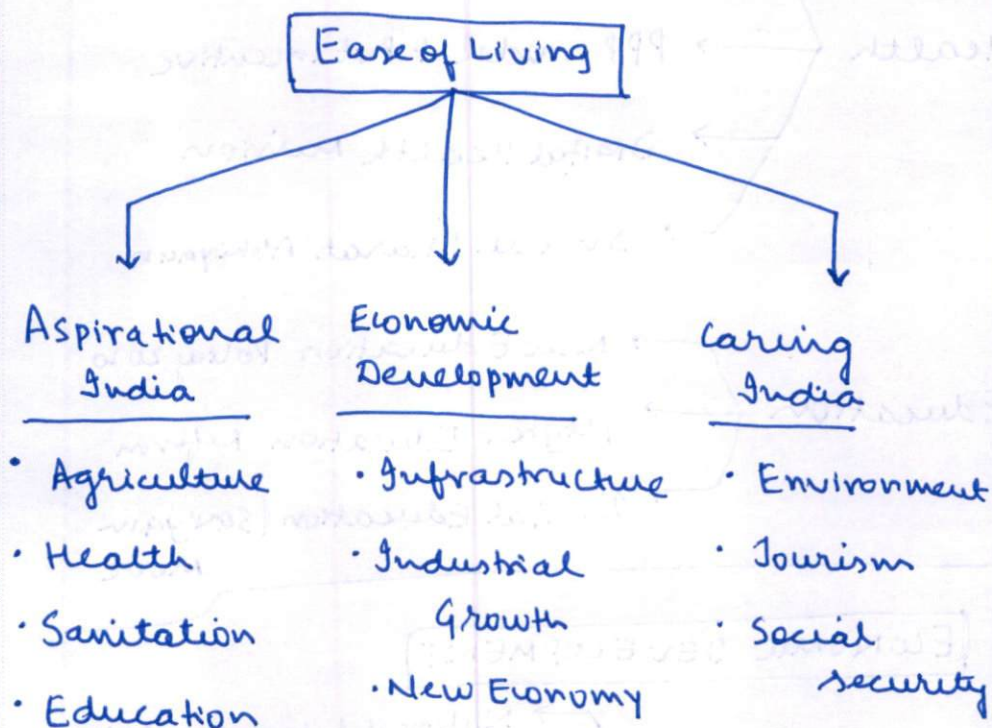 Ease of Living
Aspirational
India
• Agriculture
• Health
• Sanitation
• Education
Economic
Development
• Infrastructure
• Industrial
Growth
• New Economy
Caring
India
• Environment
• Tourism
• Social
security